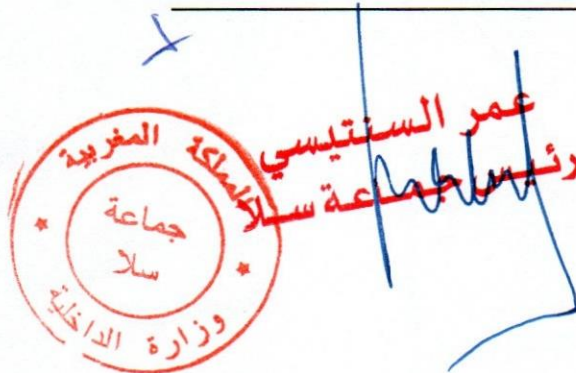 عمر السنتيسي
رئيس جماعة سلا
المملكة المغربية
جماعة
سلا
وزارة الداخلية